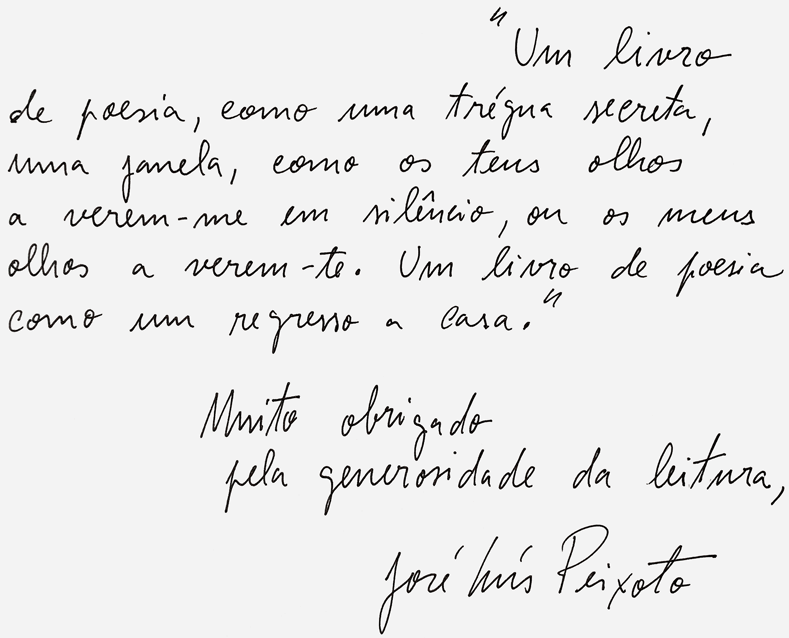 "Um livro
de poesia, como uma trégua secreta,
uma janela, como os teus olhos
a verem-me em silêncio, ou os meus
olhos a verem-te. Um livro de poesia
como um regresso a casa."
Muito obrigado
pela generosidade da leitura,
José Luís Peixoto